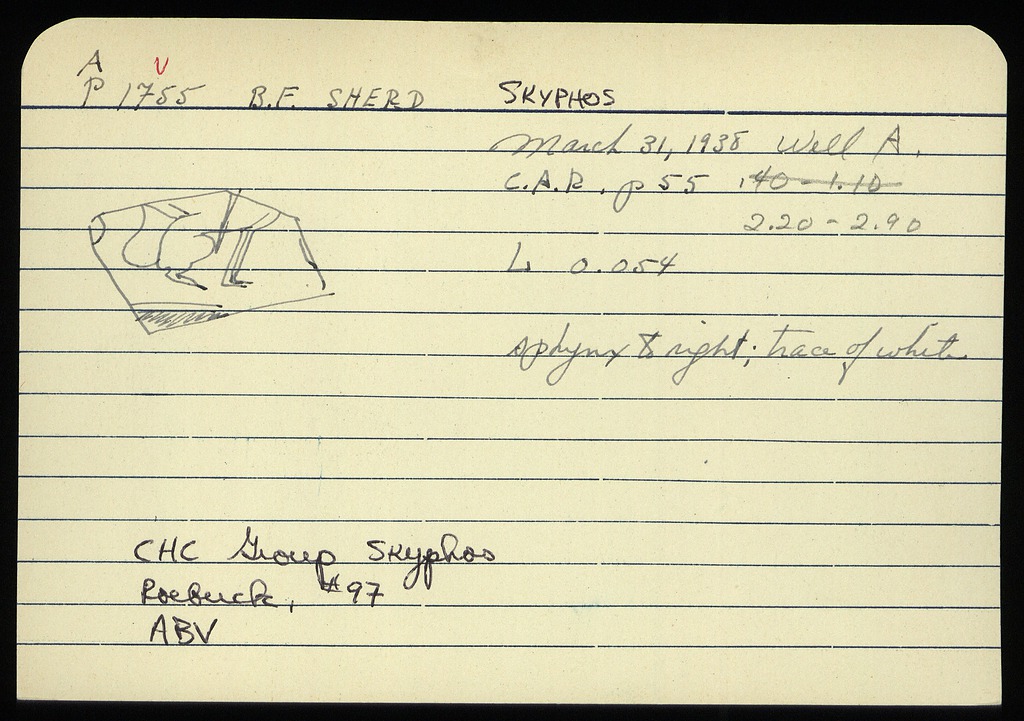 A V
P 1755 B.F. SHERD SKYPHOS
March 31, 1938 Well A.
C.A.R. p 55 .40 - 1.10
2.20 - 2.90
L 0.054
sphynx to right; trace of white
CHC Group Skyphos
Roebuck, #97
ABV